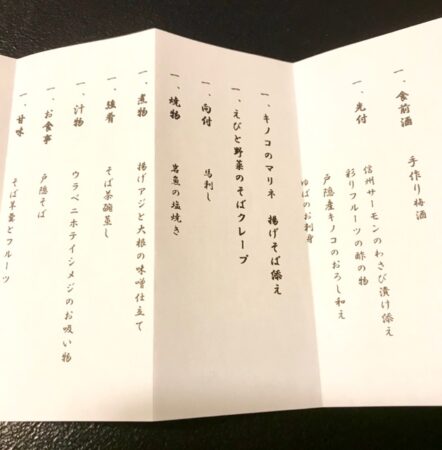 一、食前酒　手作り梅酒
一、先付　信州サーモンのわさび漬け添え
彩りフルーツの酢の物
戸隠産キノコのおろし和え
ゆばのお刺身
一、キノコのマリネ　揚げそば添え
一、えびと野菜のそばクレープ
一、向付　馬刺し
一、焼物　岩魚の塩焼き
一、煮物　揚げアジと大根の味噌仕立て
一、強肴　そば茶碗蒸し
一、汁物　ウラベニホテイシメジのお吸い物
一、お食事　戸隠そば
一、甘味　そば羊羹とフルーツ